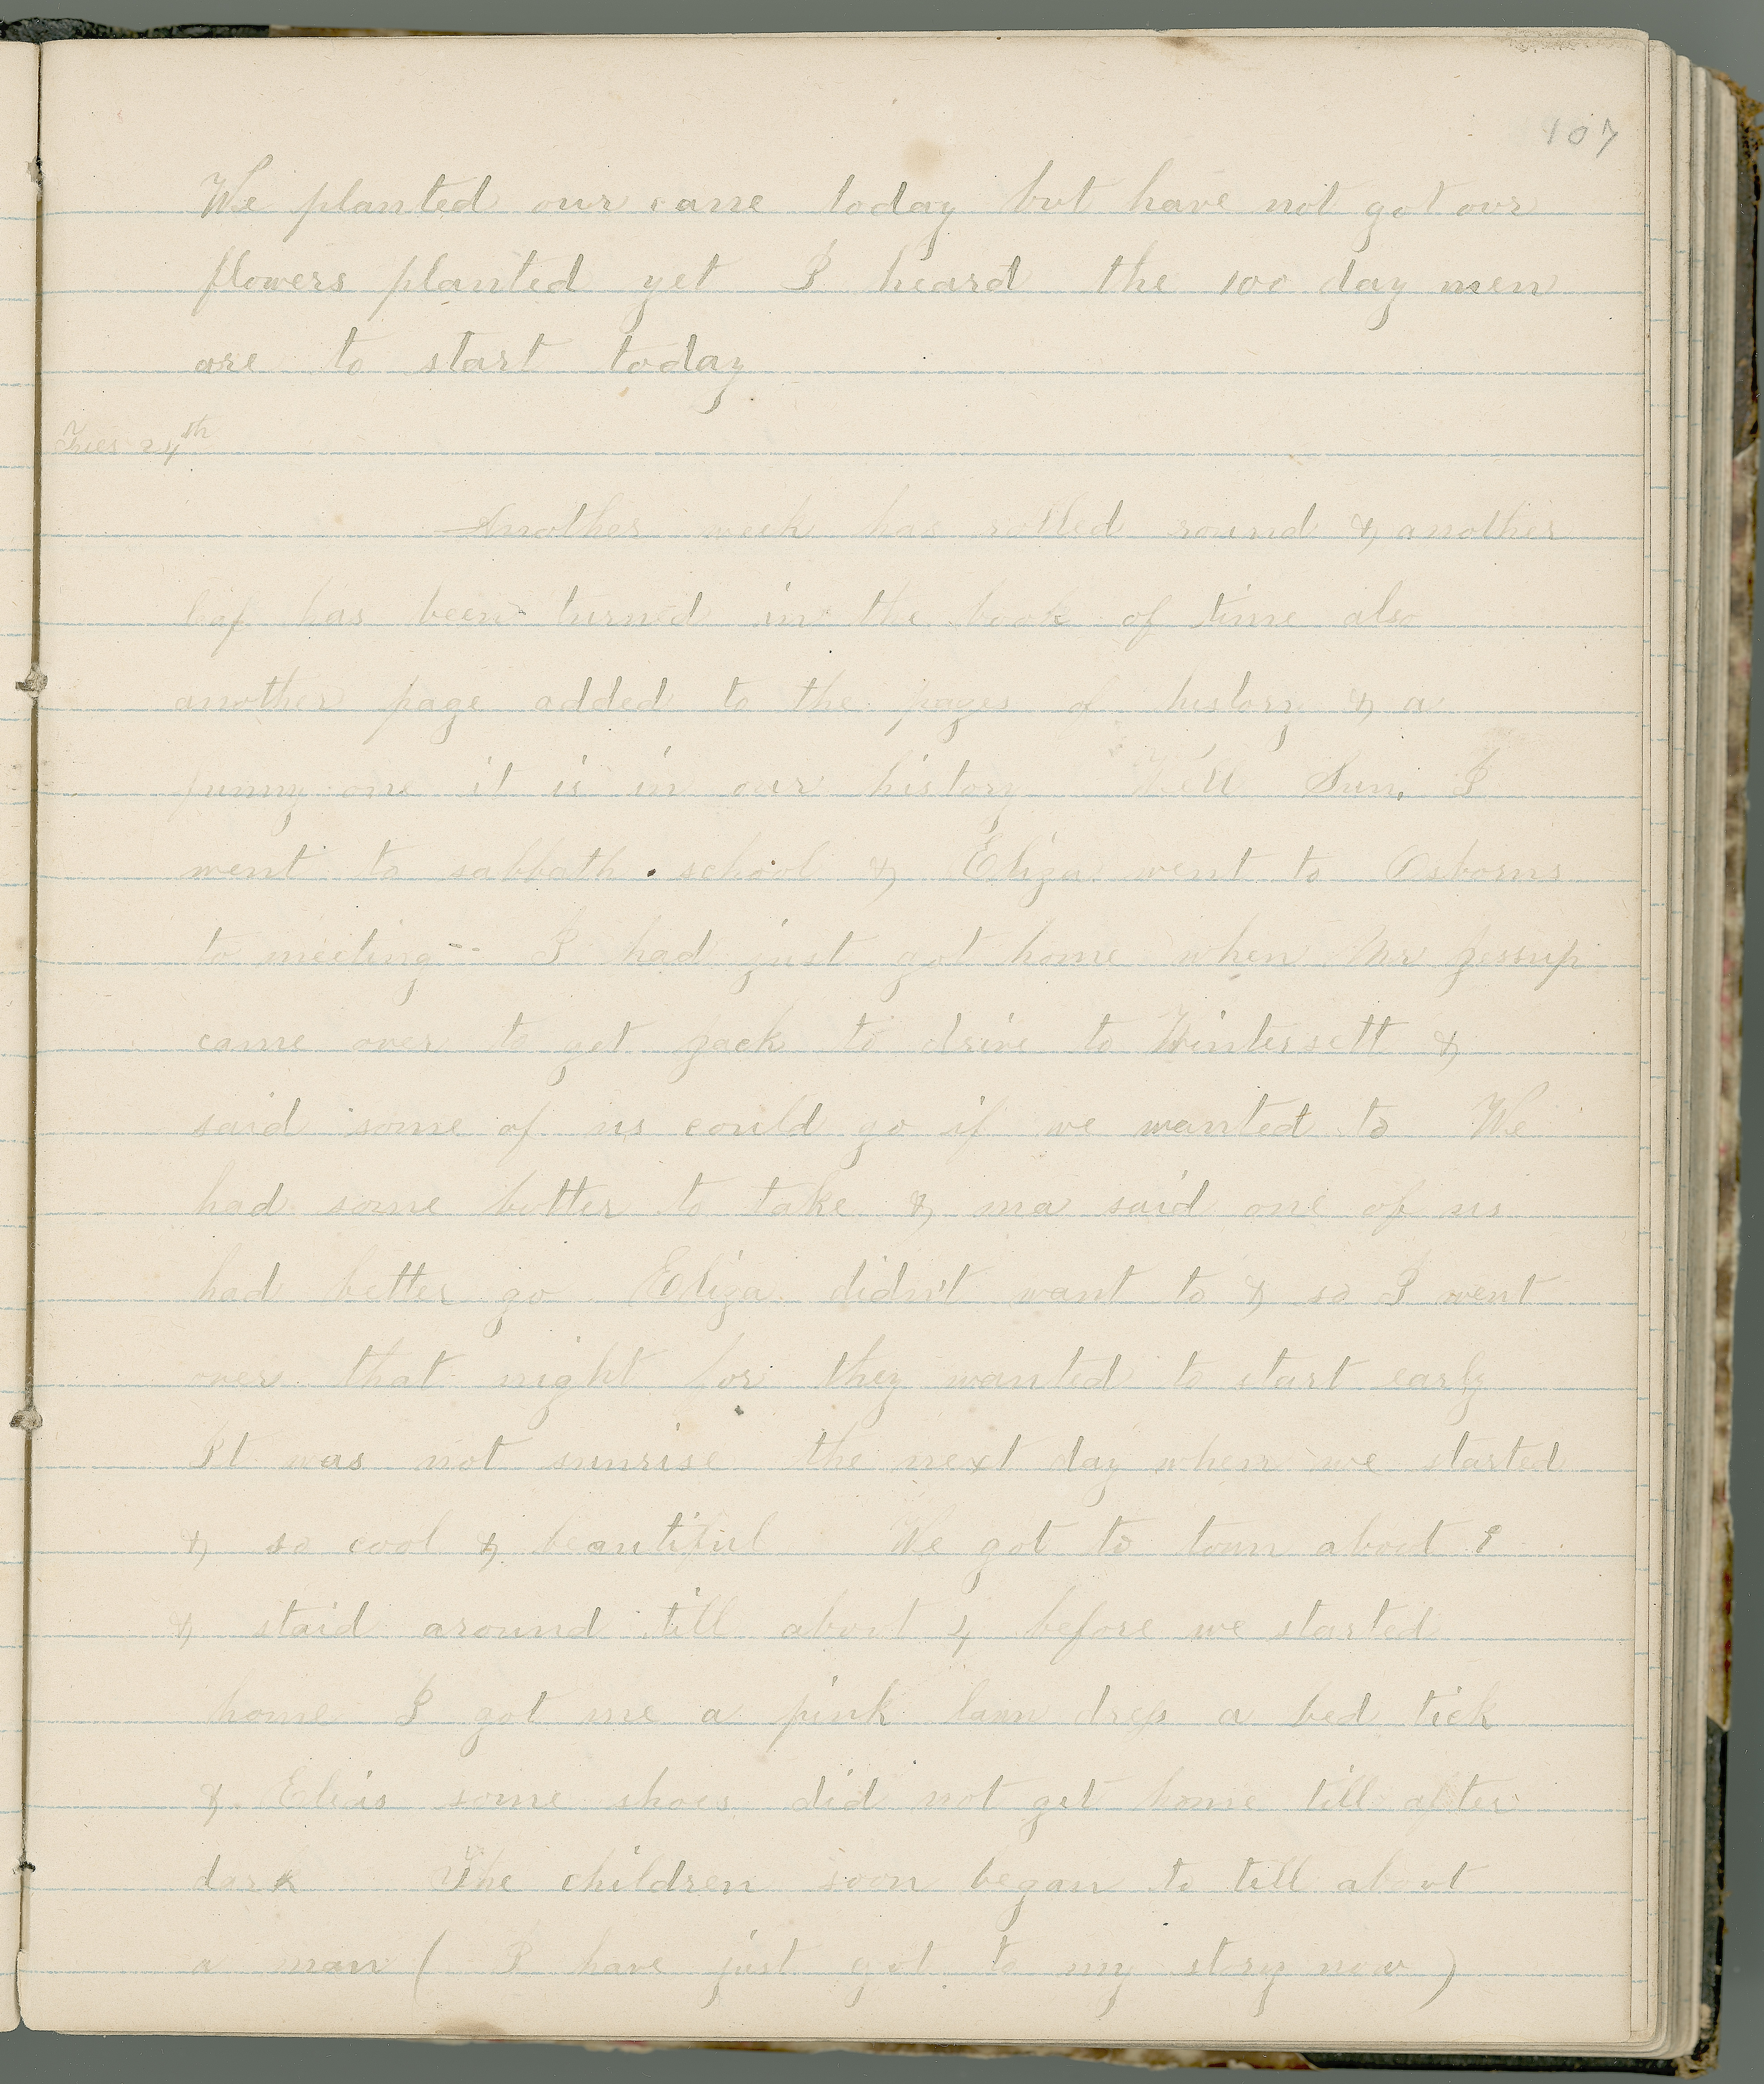 107
We planted our cane today but have not got our
flowers planted yet I heard the 100 day men
are to start today
Tues 24th
Another week has rolled round & another
leaf has been turned in the book of time also
another page added to the pages of history & a
funny one it is in our history Well Sun, I
went to sabbath school & Eliza went to Osborns
to meeting -- I had just got home when Mr Jessup
came over to get Jack to drive to Wintersett &
said some of us could go if we wanted to We
had some butter to take & ma said one of us
had better go Eliza didn't want to & so I went
over that night for they wanted to start early
It was not sunrise the next day when we started
& so cool & beautiful We got to town about
& staid around till about 4 before we started
home I got me a pink lawn dress a bed tick
& some shoes did not get home till after
dark The children soon began to till about
a man ( I have just got to my story now )